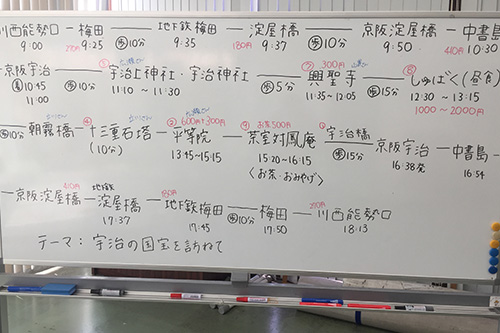 川西能勢口 ― 梅田 ― 地下鉄梅田 ― 淀屋橋 ― 京阪淀屋橋 ― 中書島
9:00 270円 9:25 歩10分 9:35 180円 9:37 歩10分 9:50 410円 10:30
京阪宇治 ― 宇治上神社・宇治神社 ― 興聖寺 ― しゅばく(昼食)
着10:45 歩10分 11:10 ~ 11:30 歩5分 300円 11:35~12:05 歩15分 12:30 ~ 13:15
11:00 1000~2000円
歩10分 朝霧橋 ― 十三重石塔 ― 平等院 ― 茶室対鳳庵 ― 宇治橋 京阪宇治 ― 中書島
(10分) 600円+300円 13:45~15:15 お茶500円 15:20~16:15 歩15分 16:38発 16:54
〈お茶・おみやげ〉
― 京阪淀屋橋 ― 地鉄淀屋橋 ― 地下鉄梅田 ― 梅田 ― 川西能勢口
410円 17:37 180円 17:45 歩10分 17:50 270円 18:13
テーマ:宇治の国宝を訪ねて